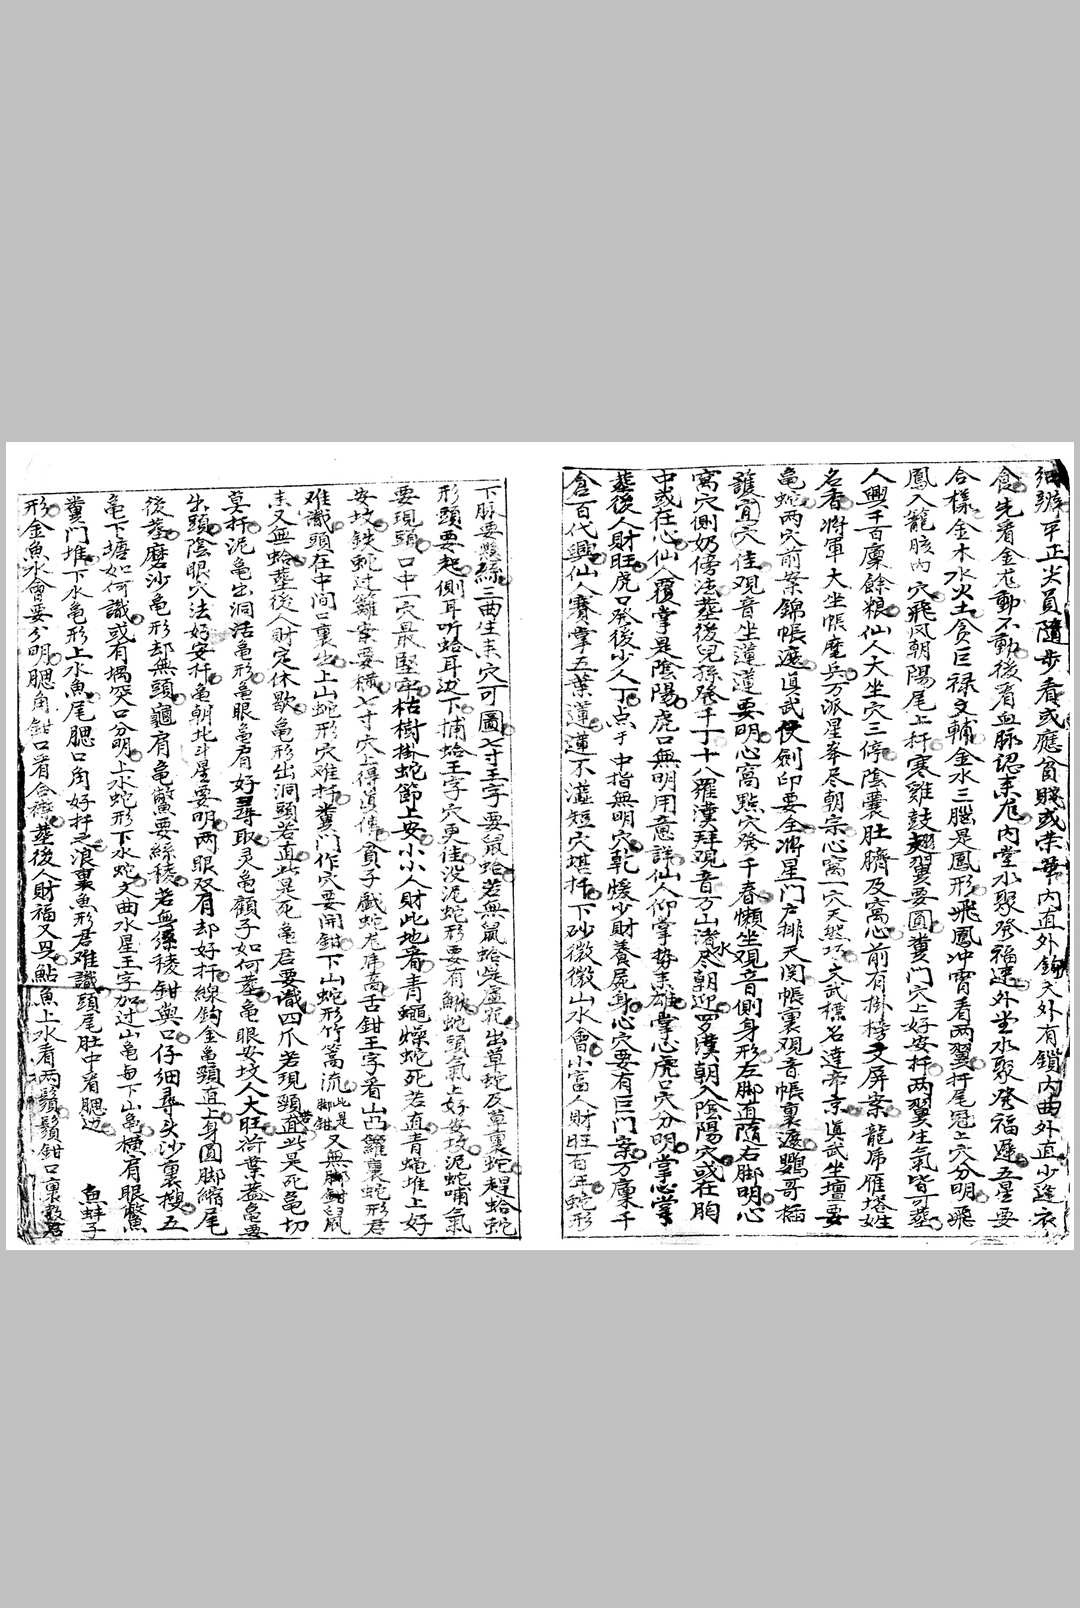 細辦平正尖員隨步看或應貧賤或荣華內直外鈎交外有鎖內曲外直少迯衣
食先看金龙動不動後看血脉認来龙內堂水聚發福速外堂水聚發福遲五星要
合樣金木水火土贪巨禄文輔金水三腦是鳳形飛鳳冲霄看两翼扦尾冠上穴分明飛
鳳入籠胲內穴飛风朝陽尾上扦寒雞鼓翅翼要圓糞門穴上好安扦两翼生氣皆可塟
人興千百廪餘粮仙人大坐穴三停陰囊肚臍及窩心前有掛榜文屏案龍虎雁塔姓
名香將軍大坐帳麾兵万派星峯尽朝宗心窩一穴天然巧文武標名達帝京真武坐壇要
龟蛇两穴前案錦帳遮真武使劍印要全將星門户排天関帳裏观音帳裏遮鸚哥插
護宜穴佳观音坐蓮蓮要明心窩點穴發千春懒坐观音側身形左脚直隨右脚明心
窝穴側奶傍法塟後兒孫發千丁十八羅漢拜观音万山潴水尽朝迎罗漢朝入陰陽穴或在胸
中或在心仙人覆掌是陰陽虎口無明用意詳仙人仰掌势来雄掌心虎口穴分明掌心掌
塟後人財旺虎口發後少人丁点于中指無明穴乾燥少財養屍身心穴要有巨門案万廪千
倉百代興仙人賽掌五葉蓮蓮不灋短穴堪扦下砂微微山水會小富人財旺百年蛇形
下脉要懸絲三曲生来穴可圖七寸王字要鼠蛤若無鼠蛤柴虛花出草蛇及草裏蛇趕蛤蛇
形頭要起側耳听蛤耳边下捕蛤王字穴更佳沒泥蛇形要有鰍蛇頭氣上好安坟泥蛇哺氣
要現頭口中一穴最堅牢枯樹掛蛇節上安小小人財此地看青蠅燥蛇死若直青蝇堆上好
安坟鉄蛇过籬案要横七寸穴上得真傳貧子戲蛇龙虎高舌鉗王字看山凸籬裏蛇形君
难識頭在中间口裏出上山蛇形穴难扦糞門作穴要開鉗下山蛇形竹篙流此是脚鉗又無脚鉗鼠
来又無蛤塟後人財定休歇龟形出洞頭若直此是死龟君要識四爪若現頸直此是死龟切
莫扦泥龟出洞活龟形龟眼龟肩好尋取灵龟顧子如何塟龟眼安坟人大旺荷葉盖龟要
出頭陰眼穴法好安扦龟朝北斗星要明两眼双肩却好扦線鈎金龟頸直上身圓脚縮尾
後塟麽沙龟形却無頭 肩龟鱉要絲稜若無絲稜鉗與口仔細尋夹沙裏
龟下塘如何識或有堨突口分明上水蛇形下水蛇文曲水星王字加过山龟每下山龟横肩眼鱉
糞門堆下水龟形上水魚尾腮口角好扦之浪裏魚形君难識頭尾肚中看腮边 魚蚌子
形金魚水會要分明腮角鉗口看合襟塟後人財福又貝鮎魚上水看两鬚鬚鉗口裏